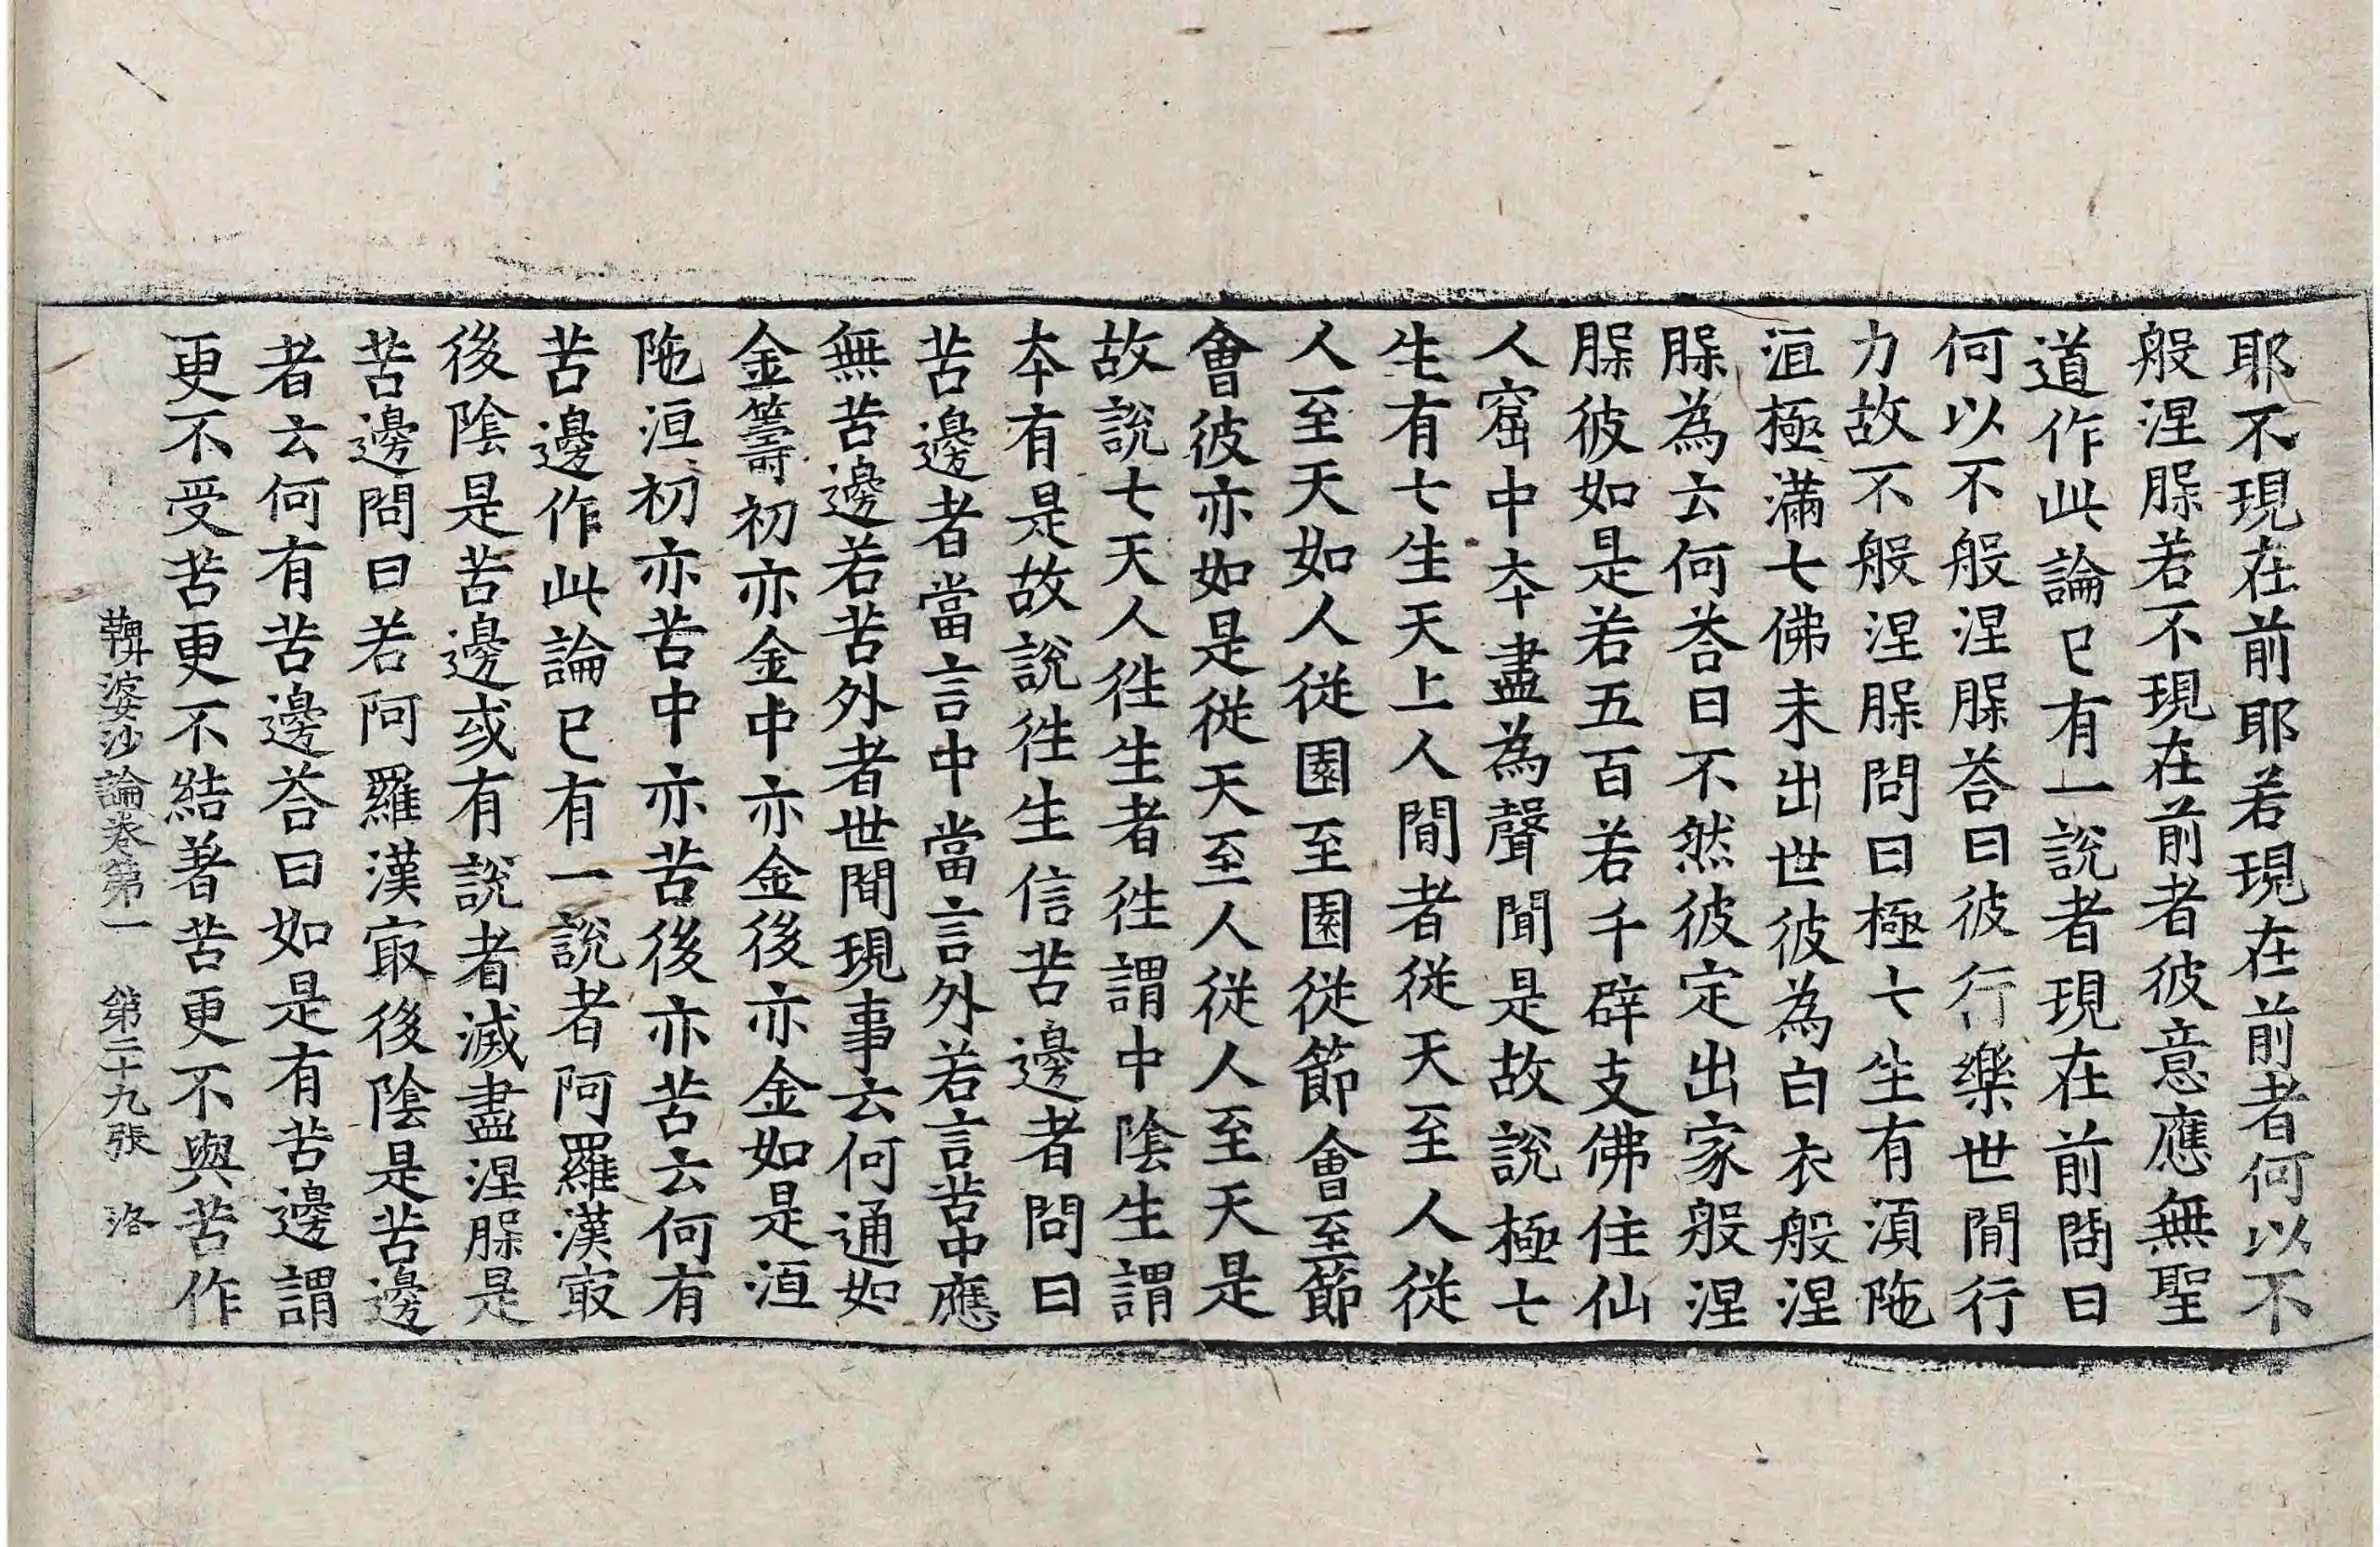 耶不現在前耶若現在前者何以不
般涅腺若不現在前者彼意應無聖
道作此論已有一說者現在前問曰
何以不般涅腺荅曰彼行樂世間行
力故不般涅腺問曰極七生有湏陁
洹極滿七佛未出世彼為白衣般涅
腺為云何荅曰不然彼定出家般涅
腺彼如是若五百若千辟支佛住仙
人窟中夲盡為聲聞是故說極七
生有七生天上人間者從天至人從
人至天如人從園至園從節會至節
會彼亦如是從天至人從人至天是
故說七天人徃生者徃謂中陰生謂
夲有是故說徃生信苦邊者問曰
苦邊者當言中當言外若言苦中應
無苦邊若苦外者世間現事云何通如
金籌初亦金中亦金後亦金如是洹
陁洹初亦苦中亦苦後亦苦云何有
苦邊作此論已有一說者阿羅漢㝡
後陰是苦邊或有說者滅盡涅腺是
苦邊問曰若阿羅漢㝡後陰是苦邊
者云何有苦邊荅曰如是有苦邊謂
更不受苦更不結著苦更不與苦作
鞞婆沙論卷第一　第二十九張　洛